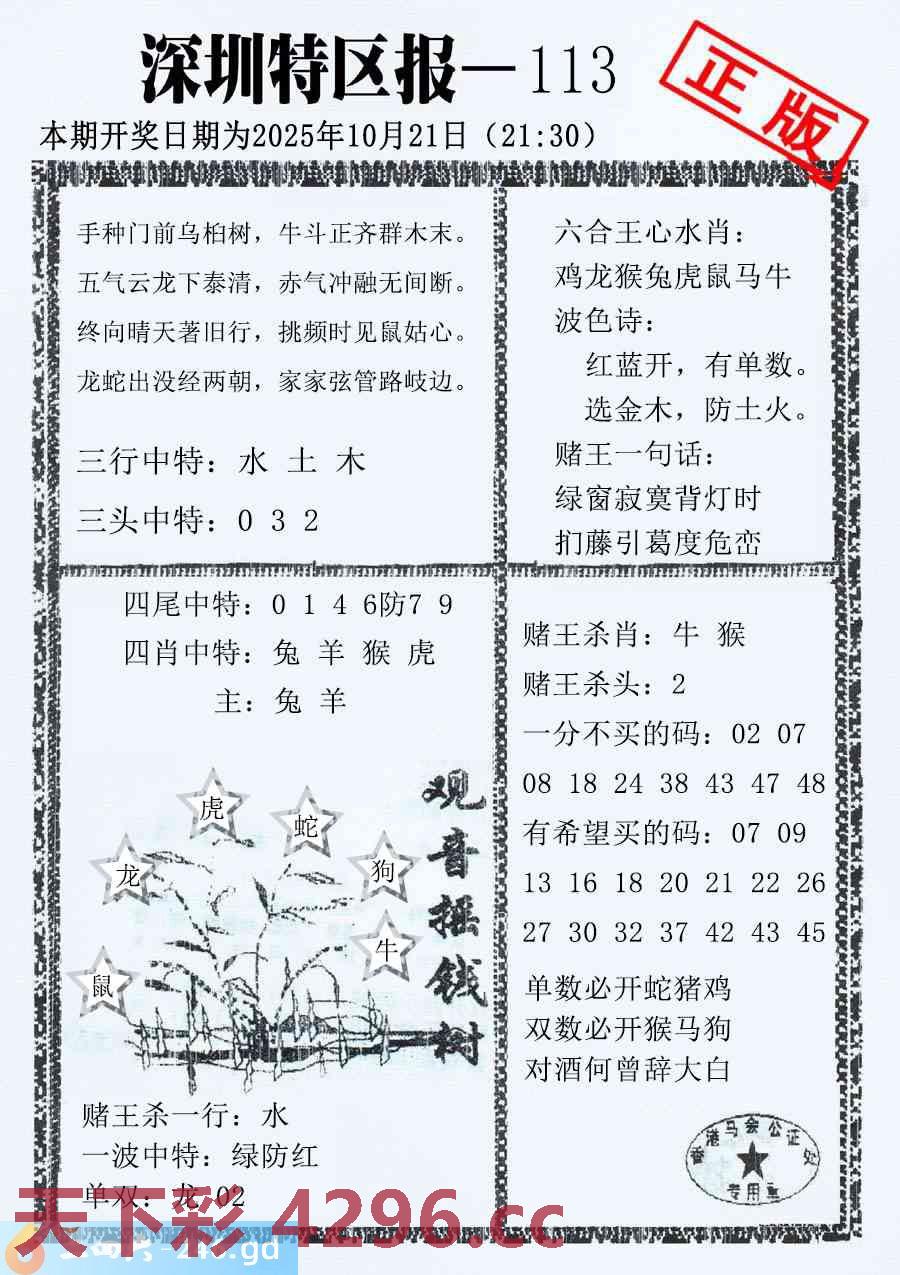 深圳特区报—113
正版
本期开奖日期为2025年10月21日（21:30）
手种门前乌柏树，牛斗正齐群木末。
五气云龙下泰清，赤气冲融无间断。
终向晴天著旧行，挑频时见鼠姑心。
龙蛇出没经两朝，家家弦管路岐边。
三行中特：水 土 木
三头中特：0 3 2
六合王心水肖：
鸡龙猴兔虎鼠马牛
波色诗：
红蓝开，有单数。
选金木，防土火。
赌王一句话：
绿窗寂寞背灯时
扪藤引葛度危峦
四尾中特：0 1 4 6防7 9
四肖中特：兔 羊 猴 虎
主：兔 羊
虎
蛇
龙
狗
牛
鼠
观音摇钱树
赌王杀一行：水
一波中特：绿防红
单双：龙 02
赌王杀肖：牛 猴
赌王杀头：2
一分不买的码：02 07
08 18 24 38 43 47 48
有希望买的码：07 09
13 16 18 20 21 22 26
27 30 32 37 42 43 45
单数必开蛇猪鸡
双数必开猴马狗
对酒何曾辞大白
香港马会公证处
专用章
天下彩 4296.cc
246.gd